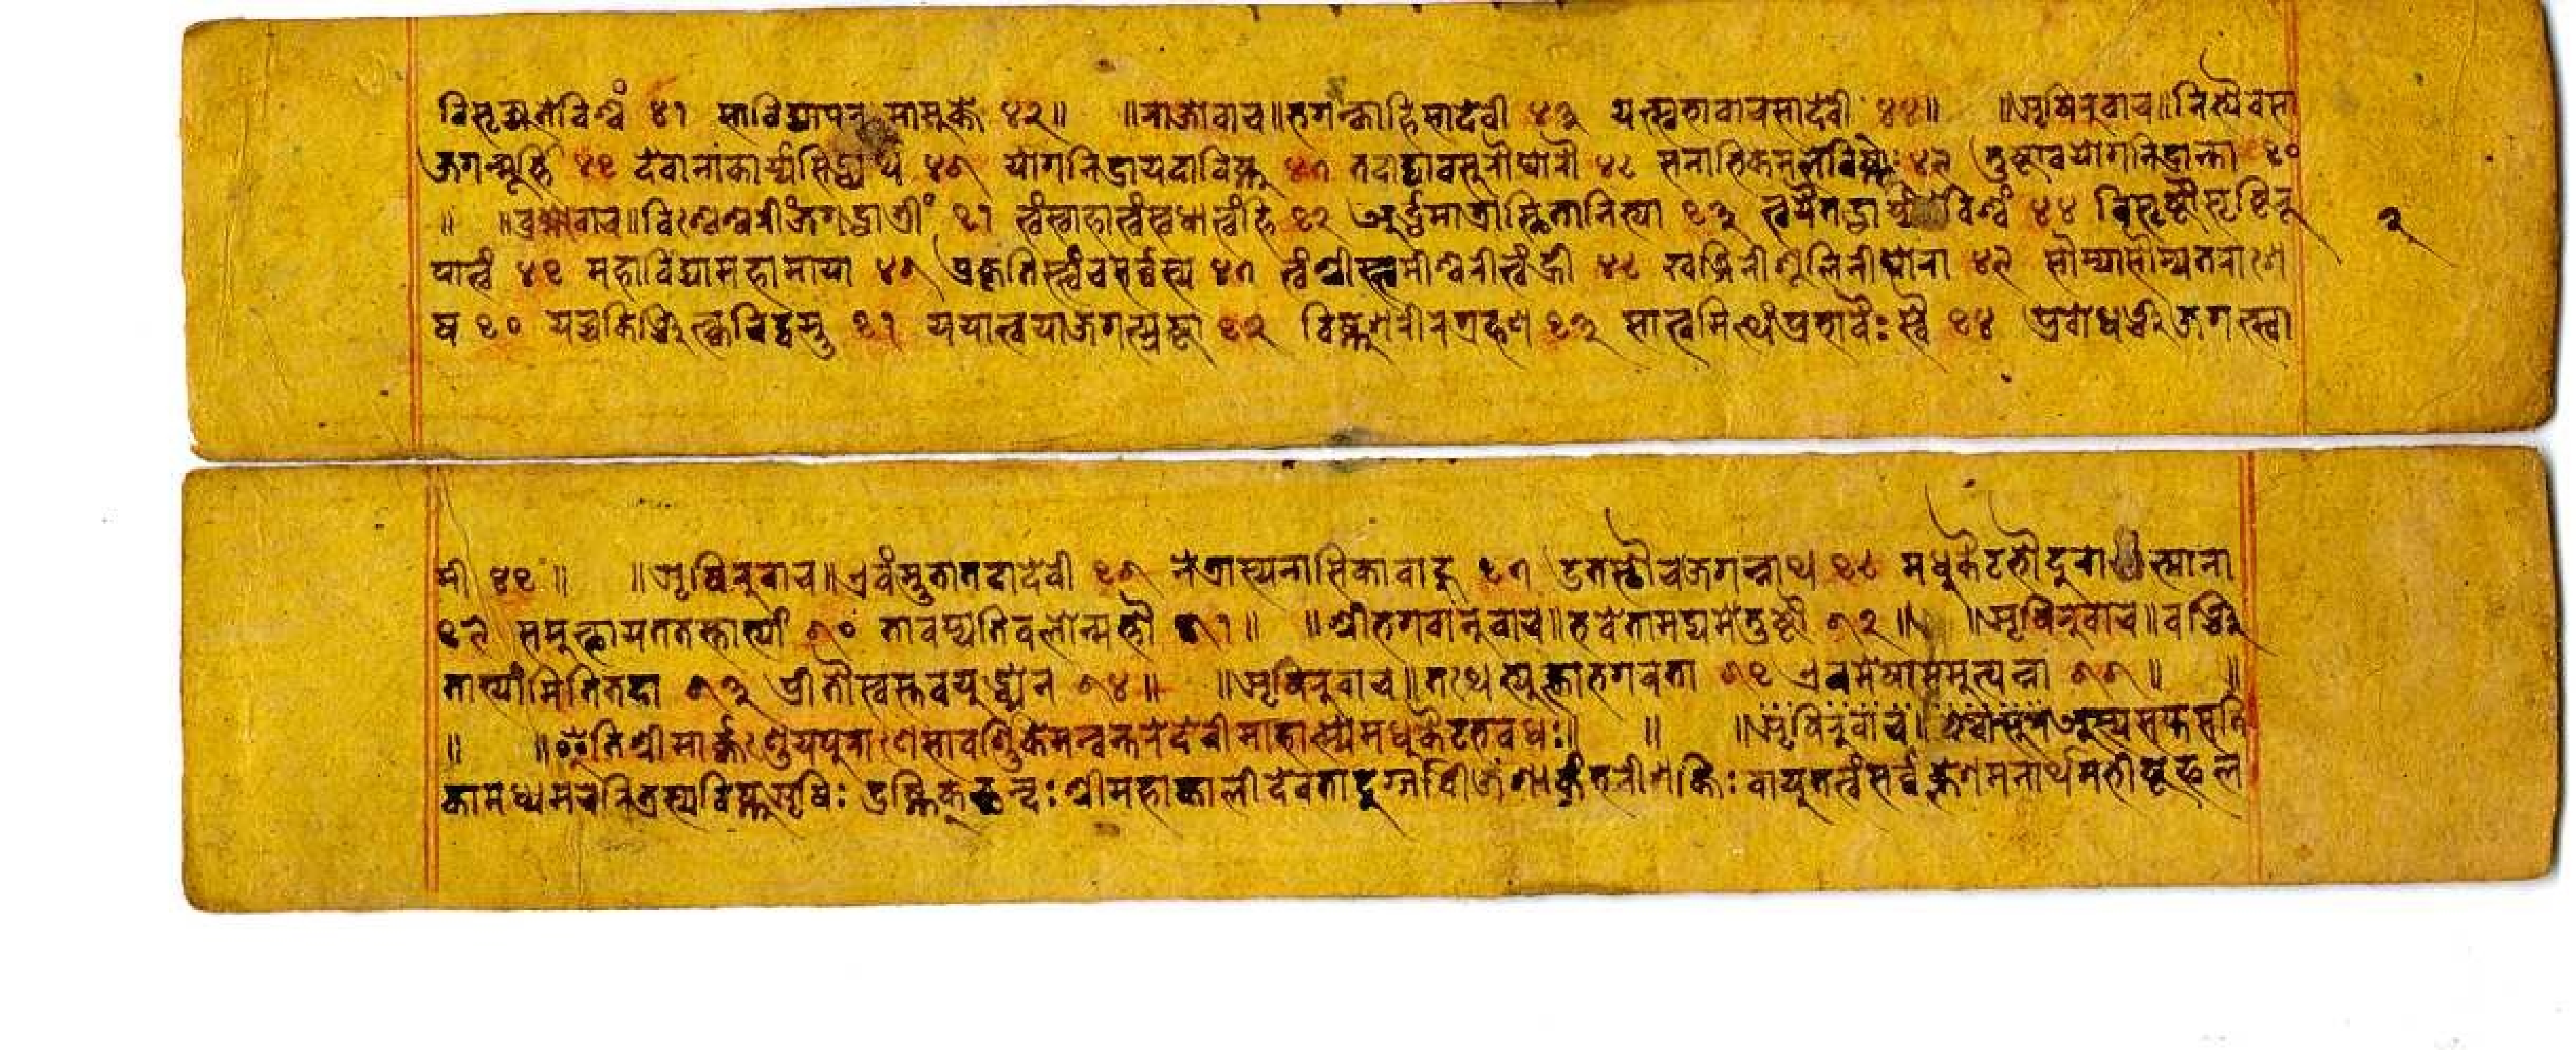 विसृज्यतेविश्वं ४१ साविद्यापरमामुक्ते ४२॥ ॥राजोवाच॥भगवन्काहिसादेवी ४३ यत्स्वभावाचसादेवी ४४॥ ॥ऋषिरुवाच॥नित्यैवसा
जगन्मूर्त्ति ४५ देवानांकार्य्यसिद्ध्यर्थं ४६ योगनिद्रायदाविष्णु ४७ तदाद्वावसुरौघोरौ ४८ सनाभिकमलेविष्णोः ४९ तुष्टावयोगनिद्रान्ता ५०
॥ ॥ब्रह्मोवाच॥विश्वेश्वरीञ्जगद्धात्रीं ५१ त्वंस्वाहात्वंस्वधात्वंहि ५२ अर्द्धमात्रास्थितानित्या ५३ त्वयैतद्धार्य्यतेविश्वं ४४ विसृष्टौसृष्टिरू २
पात्वं ४५ महाविद्यामहामाया ४६ प्रकृतिस्त्वंचसर्व्वस्य ४७ त्वंश्रीस्त्वमीश्वरीत्वंह्री ४८ खड्गिनीशूलिनीघोरा ४९ सौम्यासौम्यतराशे
ष ५० यच्चकिञ्चित्क्वचिद्वस्तु ५१ ययात्वयाजगत्स्रष्टा ५२ विष्णुशरीरग्रहण ५३ सात्वमित्थंप्रभावैःस्वै ५४ प्रबोधञ्चजगत्स्वा
मी ४५॥ ॥ऋषिरुवाच॥एवंस्तुतातदादेवी ५६ नेत्रास्यनासिकाबाहु ५७ उतस्थौचजगन्नाथ ५८ मधुकैटभौदुरात्माना
५९ समुत्थायततस्ताभ्यां ६० तावप्यतिबलोन्मत्तौ ६१॥ ॥श्रीभगवानुवाच॥भवेतामद्यमेतुष्टौ ६२॥ ॥ऋषिरुवाच॥वञ्चि
ताभ्यामितितदा ६३ प्रीतौस्वस्तवयुद्धेन ६४॥ ॥ऋषिरुवाच॥तथेत्युक्त्वाभगवता ६५ एवमेषासमुत्पन्ना ६६॥ ॥
॥ ॥इतिश्रीमार्क्कण्डेयपुराणेसावर्ण्णिकेमन्वन्तरेदेवीमाहात्म्येमधुकैटभवधः॥ ॥ ॥ऋषिरुवाच॥ अस्यसप्तसति
कामध्यमचरित्रस्यविष्णुऋषिः उष्णिक्छन्दः श्रीमहाकालीदेवतादुर्ग्गाबीजंशाकंभरीशक्तिः वायुतत्वंसर्व्वक्लेशमनार्थमभीष्टफल